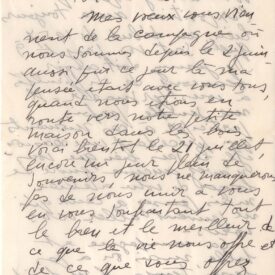 Mes vœux vous vien
nent de la campagne où
nous sommes depuis le 2 juin
aussi que ce jour là ma
pensée était avec vous tous,
quand nous étions en
route vers notre petite
maison dans les bois
voici bientôt le 21 juillet
encore un jour plein de
souvenirs, nous ne manquerons
pas de nous unir à vous
en vous souhaitant tout
le bien et le meilleur de
ce que la vie nous offre et
de ce que vous